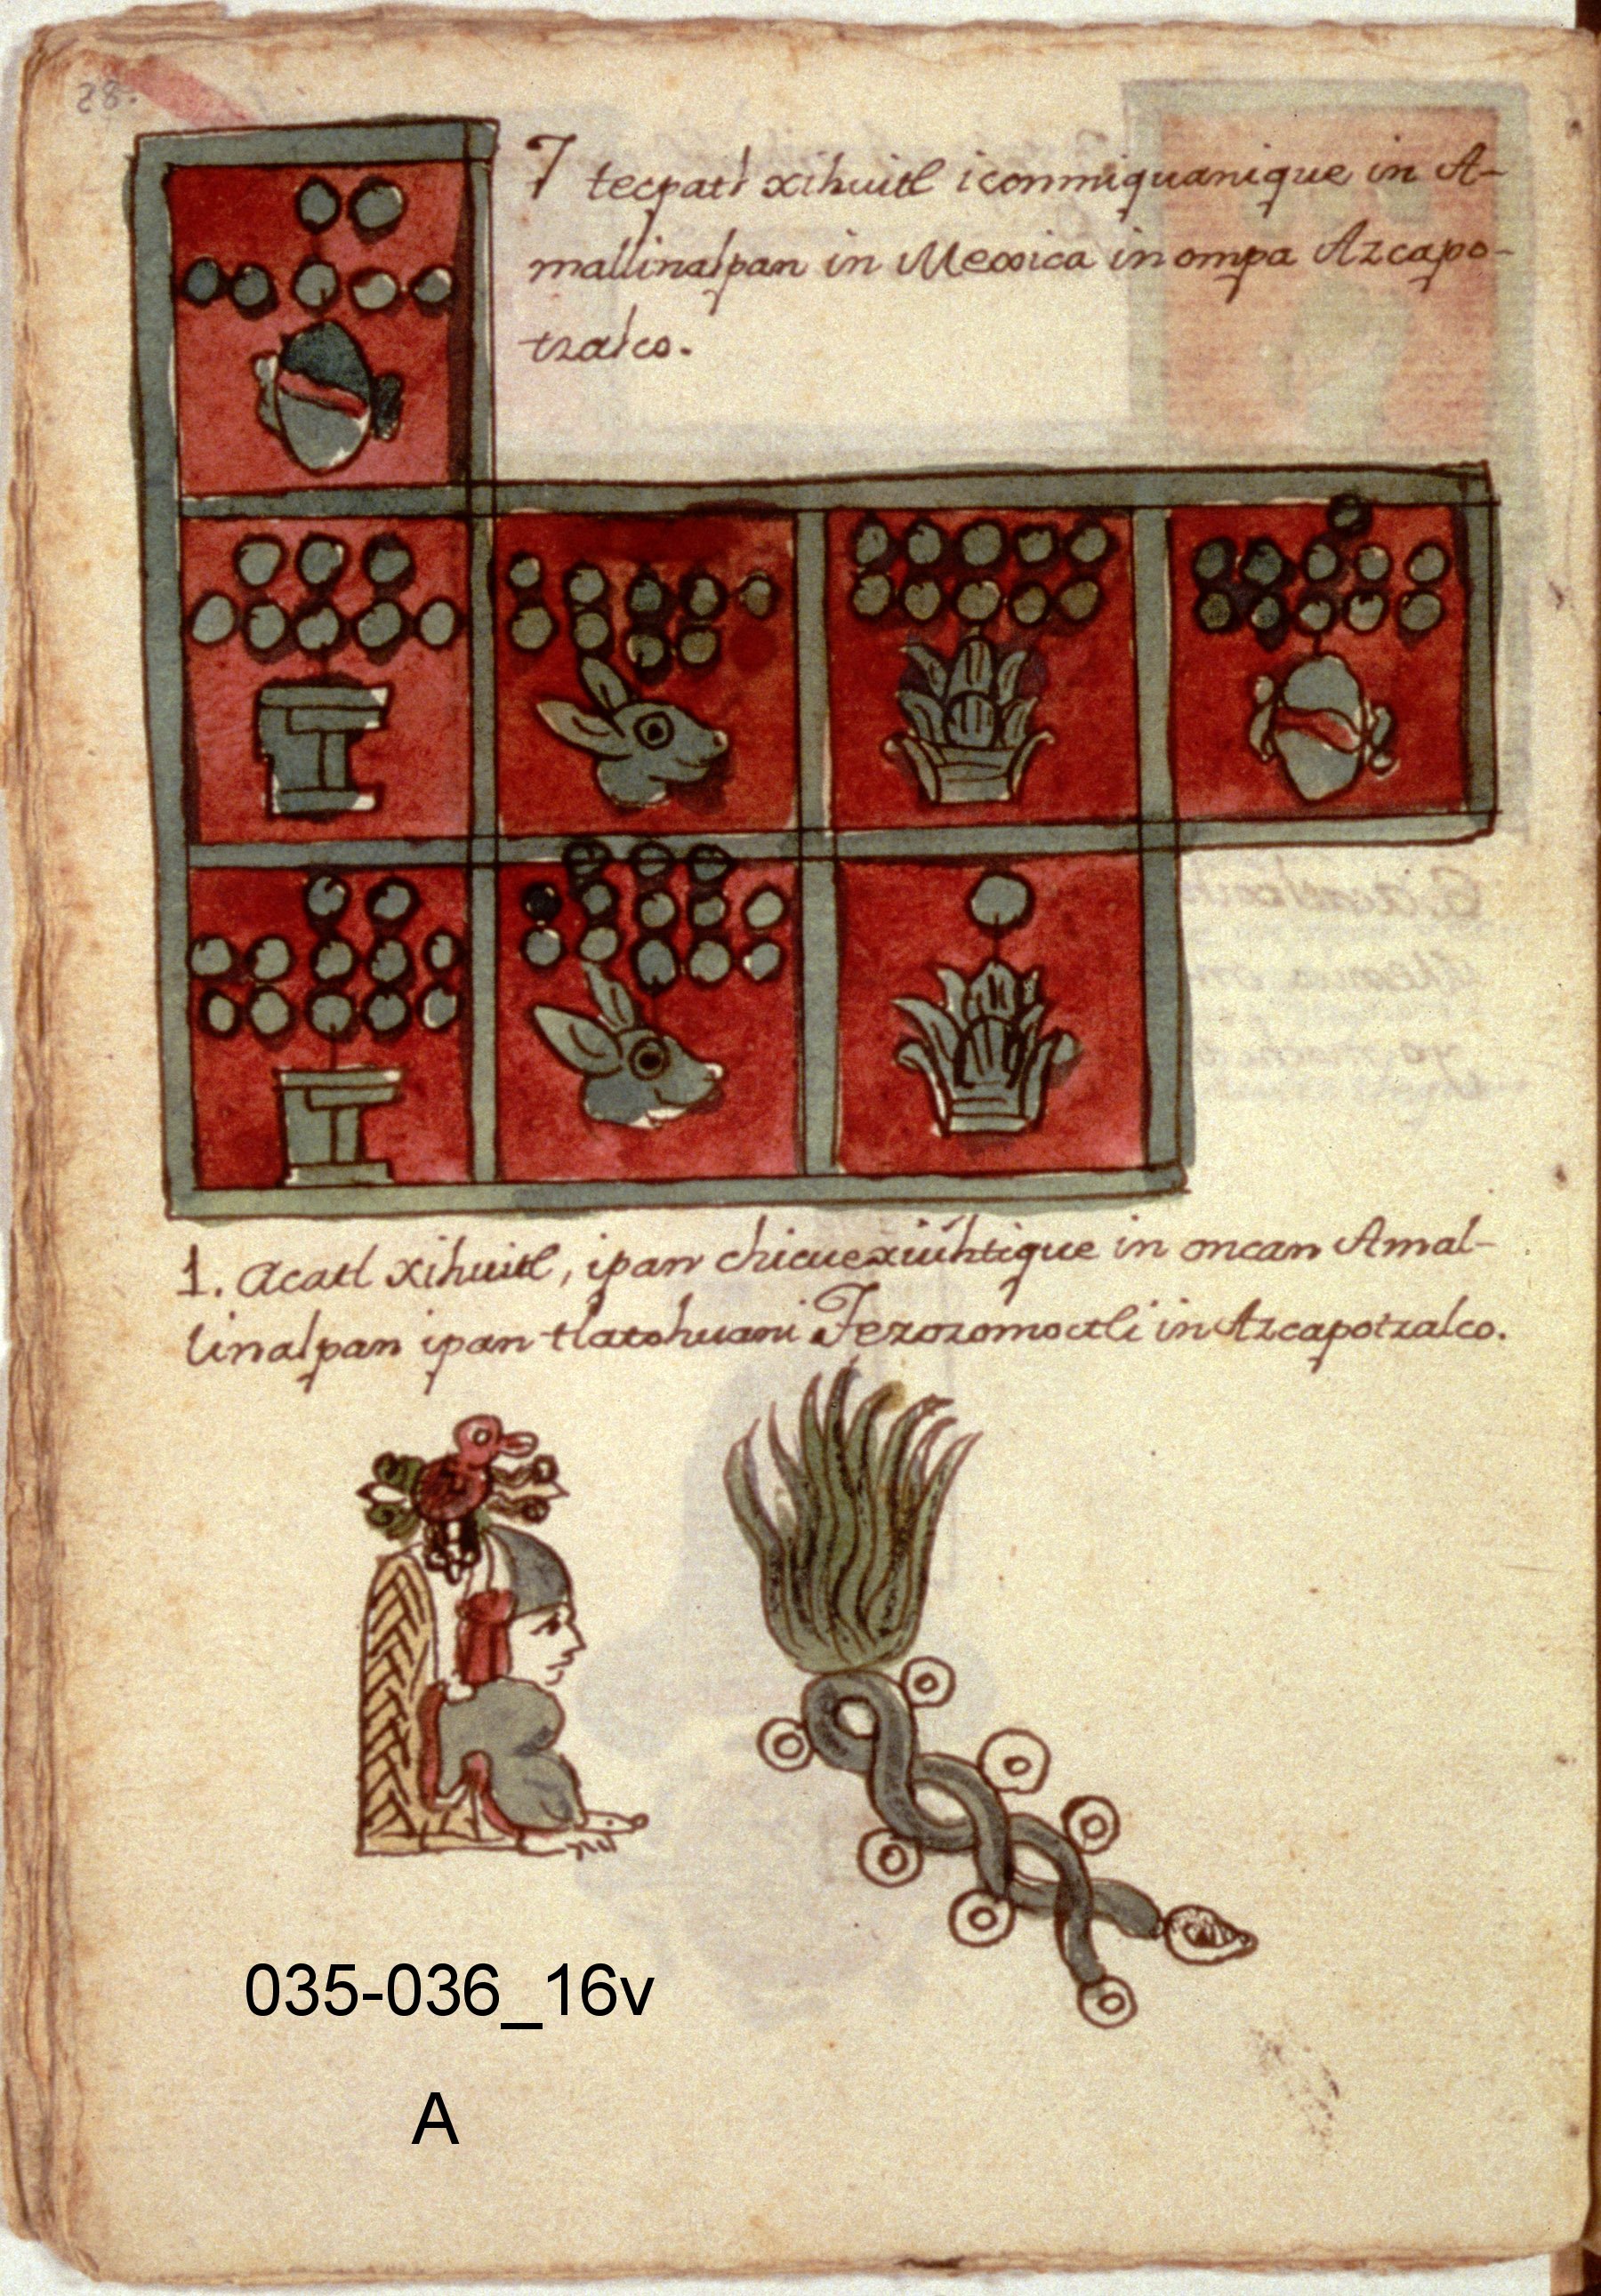 28.
7 tecpatl xihuitl iconmiquanique in A-
mallinalpan in Mexica in ompa Azcapo-
tzalco.
1. Acatl xihuitl, ipan chicuexiuhtique in oncan Amal-
linalpan ipan tlatohuani Tezozomoctli in Azcapotzalco.
035-036_16v
A